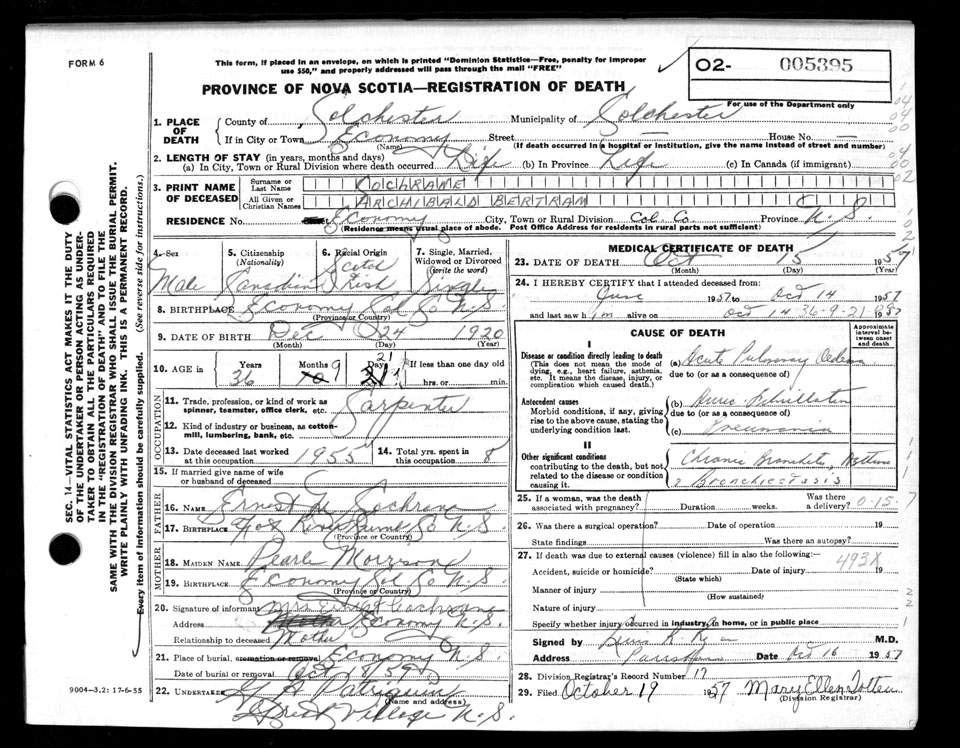 FORM 6
This form, if placed in an envelope, on which is printed "Dominion Statistics—Free, penalty for improper
use $50," and properly addressed will pass through the mail "FREE"
O2- 005395
For use of the Department only
PROVINCE OF NOVA SCOTIA—REGISTRATION OF DEATH
1. PLACE OF DEATH
County of Colchester Municipality of Colchester
If in City or Town Economy Street — House No. —
(Name) (If death occurred in a hospital or institution, give the name instead of street and number)
2. LENGTH OF STAY (in years, months and days)
(a) In City, Town or Rural Division where death occurred Life (b) In Province Life (c) In Canada (if immigrant)
3. PRINT NAME OF DECEASED
Surname or Last Name COCHRANE
All Given or Christian Names ARCHIBALD BERTRAM
RESIDENCE No. Economy City, Town or Rural Division Col. Co. Province N.S.
(Residence means usual place of abode. Post Office Address for residents in rural parts not sufficient)
4. Sex 5. Citizenship (Nationality) 6. Racial Origin 7. Single, Married, Widowed or Divorced (write the word)
Male Canadian Scotch Irish Single
8. BIRTHPLACE Economy Col Co N.S
(Province or Country)
9. DATE OF BIRTH Dec 24 1920
(Month) (Day) (Year)
10. AGE in Years 36 Months 9 Days 21 If less than one day old
hrs. or min.
OCCUPATION
11. Trade, profession, or kind of work as
spinner, teamster, office clerk, etc. Carpenter
12. Kind of industry or business, as cotton-
mill, lumbering, bank, etc.
13. Date deceased last worked
at this occupation 1955
14. Total yrs. spent in
this occupation 8
15. If married give name of wife
or husband of deceased
FATHER
16. NAME Ernest Cochrane
17. BIRTHPLACE N.S.
(Province or Country)
MOTHER
18. MAIDEN NAME Pearle Morrison
19. BIRTHPLACE Economy Col Co N.S.
(Province or Country)
20. Signature of informant Mrs Ernest Cochrane
Address Economy N.S.
Relationship to deceased Mother
21. Place of burial, cremation or removal Economy N.S.
Date of burial or removal Oct 18
22. UNDERTAKER Patriquin
(Name and address)
Great Village N.S.
MEDICAL CERTIFICATE OF DEATH
23. DATE OF DEATH Oct 15 1957
(Month) (Day) (Year)
24. I HEREBY CERTIFY that I attended deceased from:
June 1957 to Oct 14 1957
and last saw him alive on Oct 14 1957
36-9-21
CAUSE OF DEATH
Approximate interval between onset and death
I
Disease or condition directly leading to death
(This does not mean the mode of
dying, e.g., heart failure, asthenia,
etc. It means the disease, injury, or
complication which caused death.)
(a) Acute Pulmonary Oedema
due to (or as a consequence of)
Antecedent causes
Morbid conditions, if any, giving
rise to the above cause, stating the
underlying condition last.
(b)
due to (or as a consequence of)
(c) Pneumonia
II
Other significant conditions
contributing to the death, but not
related to the disease or condition
causing it.
Chronic Bronchitis, Asthma
& Bronchiectasis
25. If a woman, was the death
associated with pregnancy? Duration weeks. Was there
a delivery? 0-15-7
26. Was there a surgical operation? Date of operation 19
State findings Was there an autopsy?
27. If death was due to external causes (violence) fill in also the following:—
493X
Accident, suicide or homicide? Date of injury 19
(State which)
Manner of injury
(How sustained)
Nature of injury
Specify whether injury occurred in industry, in home, or in public place
Signed by M.D.
Address Parrsboro Date Oct 16 1957
28. Division Registrar's Record Number 17
29. Filed October 19 1957 Mary Ellen Totten
(Division Registrar)
SEC. 14—VITAL STATISTICS ACT MAKES IT THE DUTY
OF THE UNDERTAKER OR PERSON ACTING AS UNDER-
TAKER TO OBTAIN ALL THE PARTICULARS REQUIRED
IN THE "REGISTRATION OF DEATH" AND TO FILE THE
SAME WITH THE DIVISION REGISTRAR WHO SHALL ISSUE THE BURIAL PERMIT.
WRITE PLAINLY WITH UNFADING INK—THIS IS A PERMANENT RECORD.
Every item of information should be carefully supplied. (See reverse side for instructions.)
9004-3.2: 17-6-55